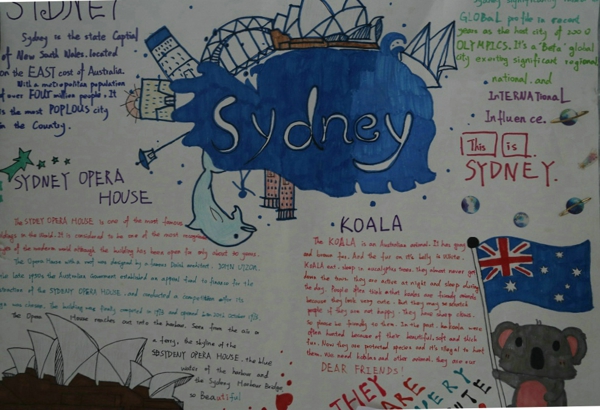 SYDNEY
Sydney is the state Capital
of New South Wales. located
on the EAST cost of Australia.
With a metropolitan population
of over FOUR million people. It
is the most POPLOUS city
in the Country.
GLOBAL profile in recent
years as the host city of 2000
OLYMPICS. It's a "Beta" global
city exerting significant regional
national. and
InTERNATIonaL
Influence.
This is
SYDNEY.
Sydney
SYDNEY OPERA
HOUSE
The SYDET OPERA HOUSE is one of the most famous
buildings in the World. It is considered to be one of the most
of the modern world although the building has been open for only about 30 years.
The Opera House with a roof was designed by a famous Danish architect. JOHN UTZON.
the late 1950s the Australian Government established an appeal fund to finance for the
construction of the SYDENY OPERA HOUSE. and conducted a competition
was chosen. The building was finally completed in 1973 and opened
The Opera House reaches out into the harbour. Seen from the air or
a ferry. the skyline of the
OPERA HOUSE. the blue
water of the harbour and
the Sydney Harbour Bridge
is Beautiful
KOALA
The KOALA is an Australian animal. It has grey
and brown fur. And the fur on its belly is white.
KOALA eat. sleep in eucalyptus trees. they almost never get
down the trees. They are active at night and sleep during
the day. People often think that koalas are friendly animals
because they look very cute. But they may scratch
people if they are not happy. They have sharp claws.
So please be friendly to them. In the past. the koalas were
often hunted because of their beautiful, soft and thick
fur. Now they are protected species and it's illegal to hunt
them. We need koalas and other animals. they are our
DEAR FRIENDS!
THEY
ARE
VERY
CUTE